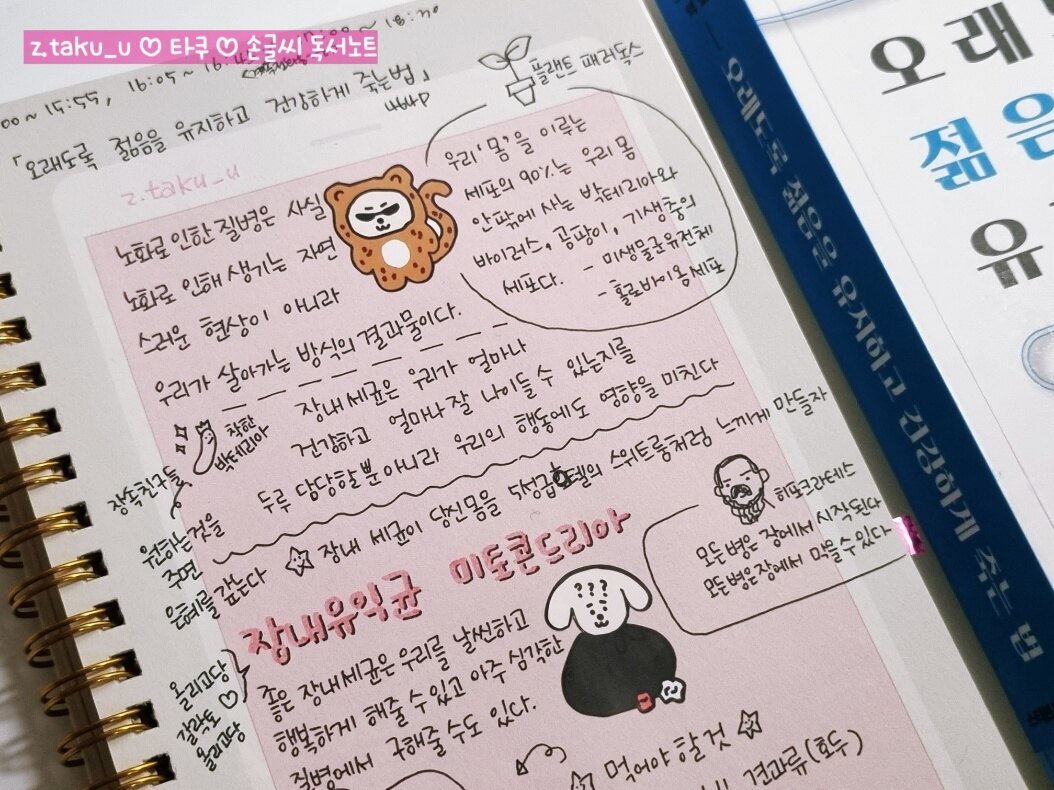 z.taku_u ♡ 타쿠 ♡ 손글씨 독서노트
00 ~ 15:55, 16:05 ~ 16:4
~ 18:20
「오래도록 젊음을 유지하고 건강하게 죽는법」
z.taku_u
플랜트 패러독스
우리 '몸'을 이루는
세포의 90%는 우리 몸
안팎에 사는 박테리아와
바이러스, 곰팡이, 기생충의
세포다.
- 미생물군유전체
- 홀로바이옴 세포
노화로 인한 질병은 사실
노화로 인해 생기는 자연
스러운 현상이 아니라
우리가 살아가는 방식의 결과물이다.
착한
박테리아
장내 세균은 우리가 얼마나
건강하고 얼마나 잘 나이들 수 있는지를
두루 담당할 뿐 아니라 우리의 행동에도 영향을 미친다
장속친구들
원하는 것을
주면
은혜를 갚는다
☆ 장내 세균이 당신 몸을 5성급호텔의 스위트룸처럼 느끼게 만들자
히포크라테스
모든 병은 장에서 시작된다
모든 병은 장에서 막을 수 있다
장내유익균 미토콘드리아
좋은 장내세균은 우리를 날씬하고
행복하게 해줄 수 있고 아주 심각한
질병에서 구해줄 수도 있다.
올리고당
갈락토
올리고당
☆ 먹어야 할 것 ☆
견과류(호두)
오래
젊은
유
오래도록 젊음을 유지하고 건강하게 죽는 법